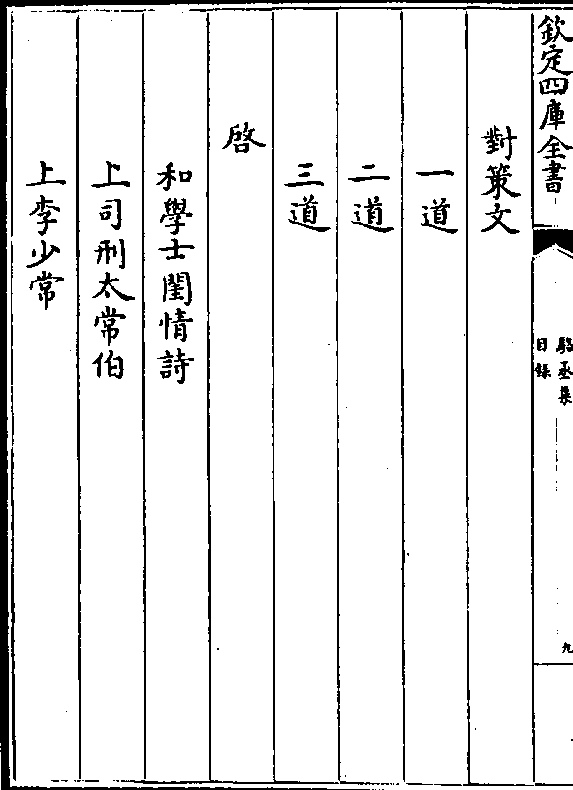 欽定四庫全書
駱丞集
目錄
九
對策文
一道
二道
三道
啓
和學士閨情詩
上司刑太常伯
上李少常